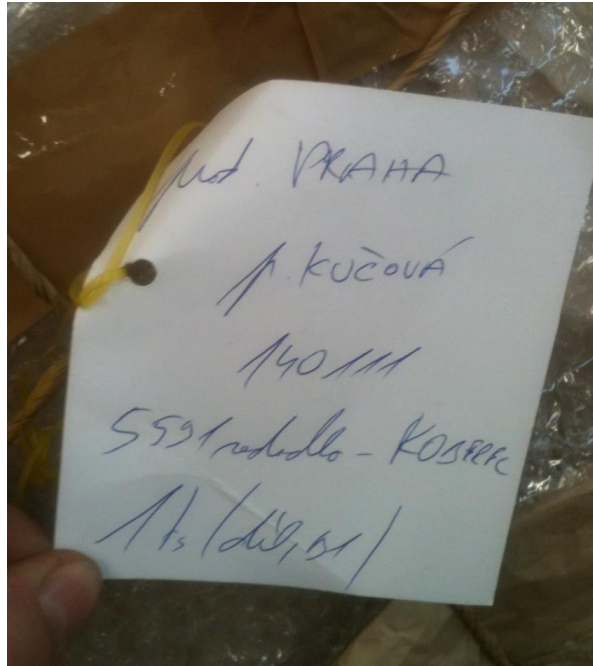 prod. PRAHA
p. KUČOVÁ
140111
5591 sedadlo - KOBEREC
1 ks